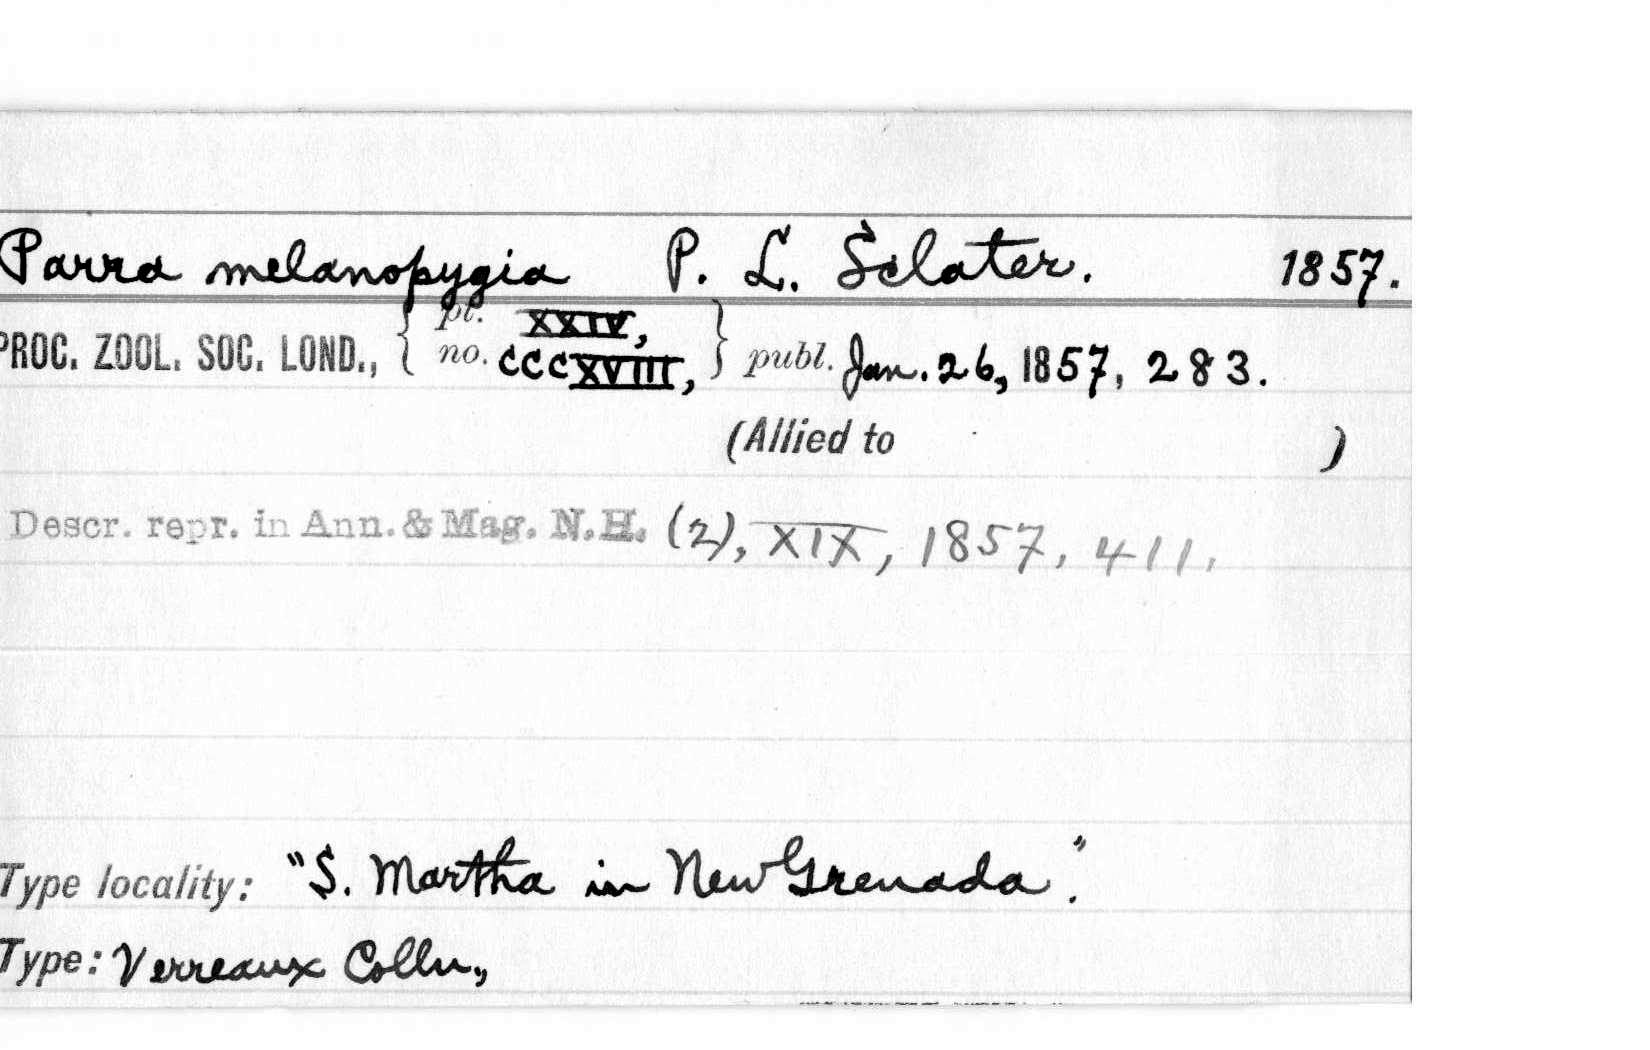 Parra melanopygia P. L. Sclater. 1857.
PROC. ZOOL. SOC. LOND., { pt. XXIV, no. CCCXVIII, } publ. Jan. 26, 1857, 283.
(Allied to )
Descr. repr. in Ann. & Mag. N.H. (2), XIX, 1857, 411.
Type locality: "S. Martha in New Grenada".
Type: Verreaux Colln.,